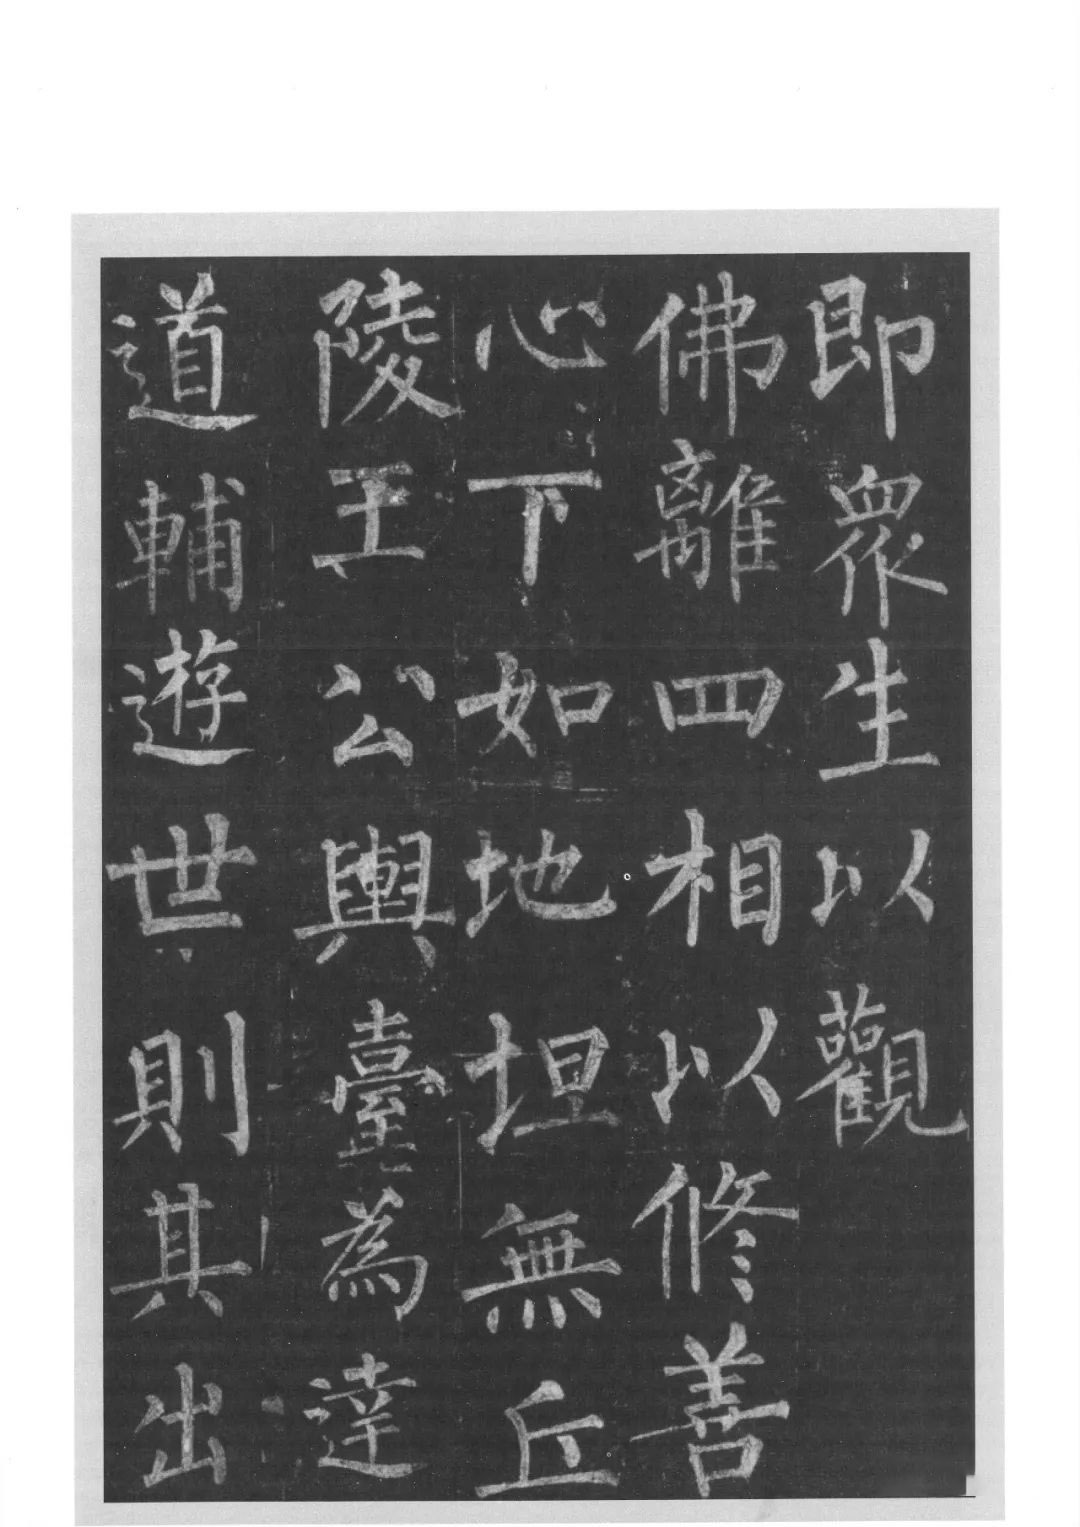 即眾生以觀
佛離四相以修善
心下如地坦無丘
陵王公輿臺為達
道輔遊世則其出